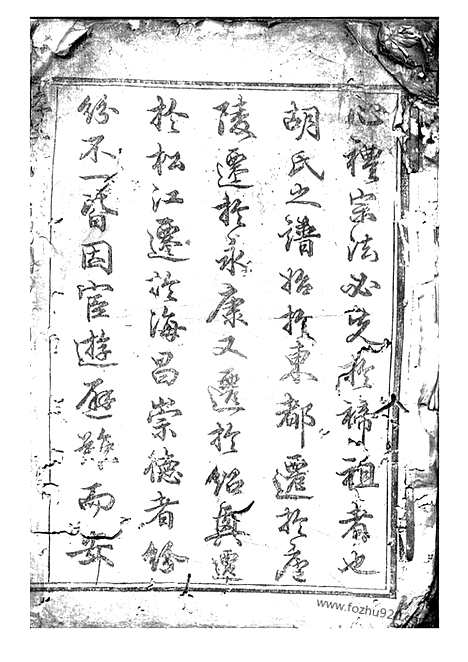 心禮宗法必先於禘祖者也
胡氏之譜始於東都遷於廬
陵遷於永康又遷於紹興遷
於松江遷於海昌崇德者紛
紛不一皆因宦遊避難而安
www.fozhu920